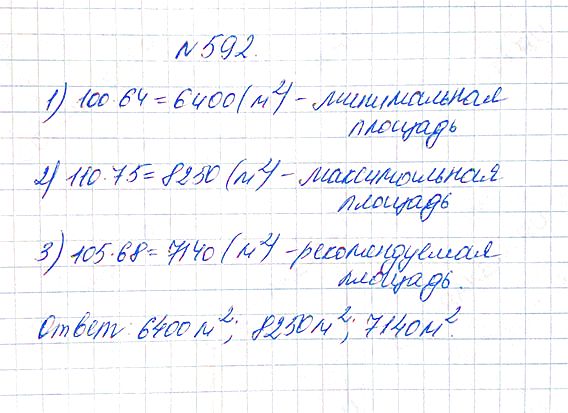 №592.
1) 100·64=6400(м²) - минимальная
площадь
2) 110·75=8250(м²) - максимальная
площадь
3) 105·68=7140(м²) - рекомендуемая
площадь.
Ответ: 6400м²; 8250м²; 7140м².